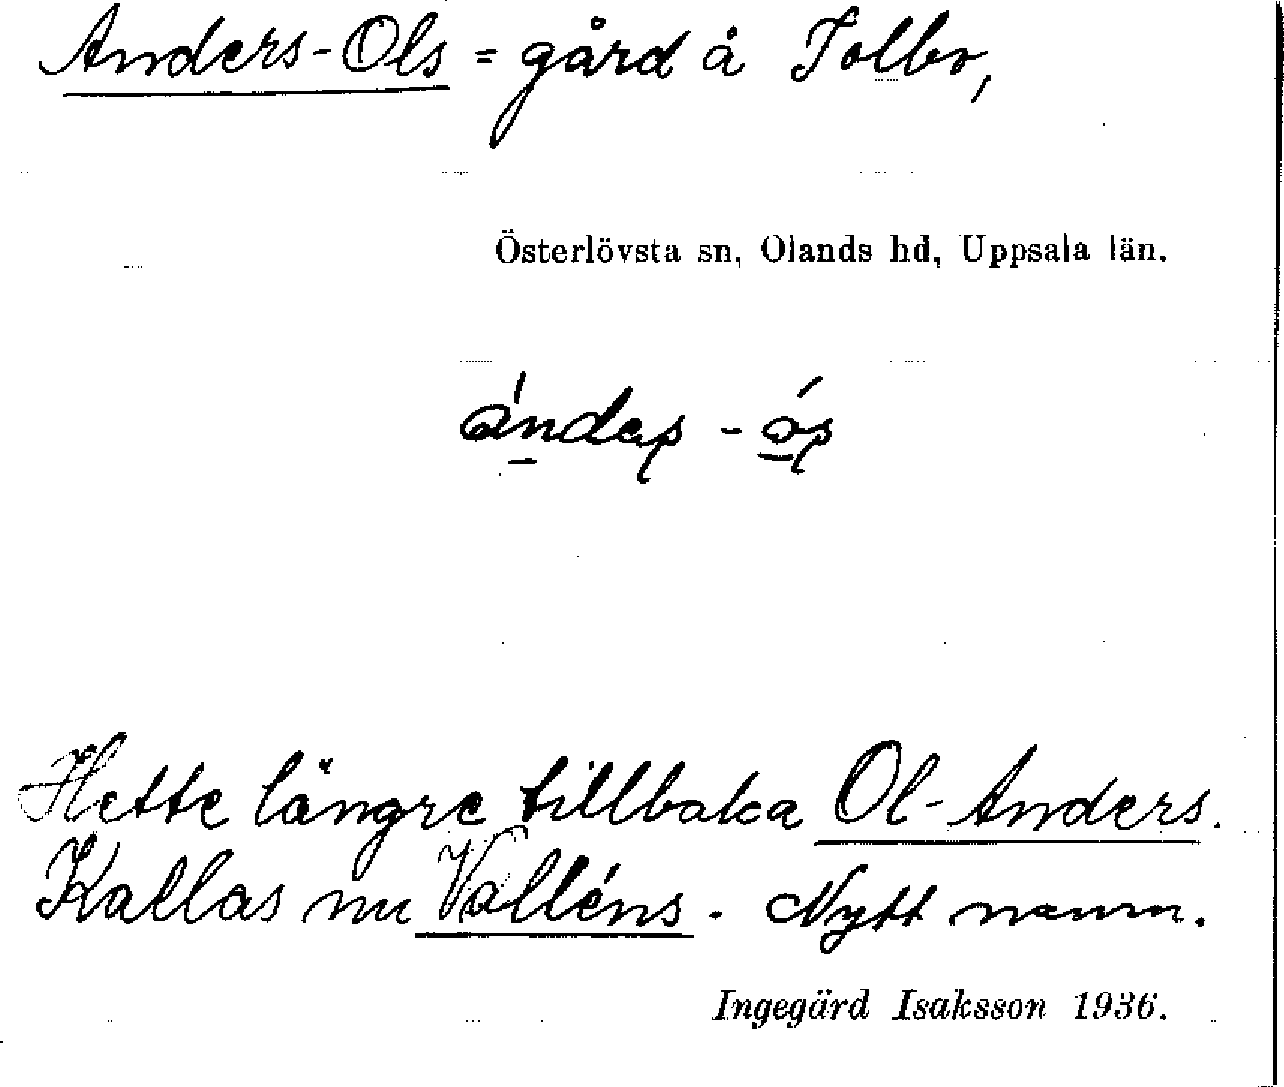 Anders-Ols = gård å Tolbo,
Österlövsta sn, Olands hd, Uppsala län.
Hette längre tillbaka Ol-Anders.
Kallas nu Valléns. Nytt namn.
Ingegärd Isaksson 1936.